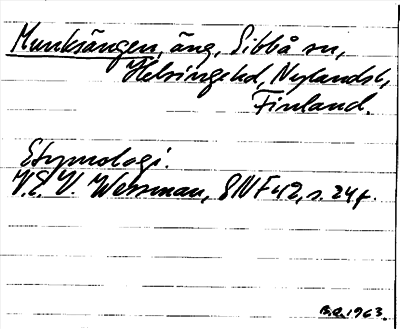 Munksängen, äng, Sibbå sn,
Helsinge hd, Nylands l,
Finland.
Etymologi.
V.E.V. Wessman, SNF 42, s. 24 f.
B.O. 1963.